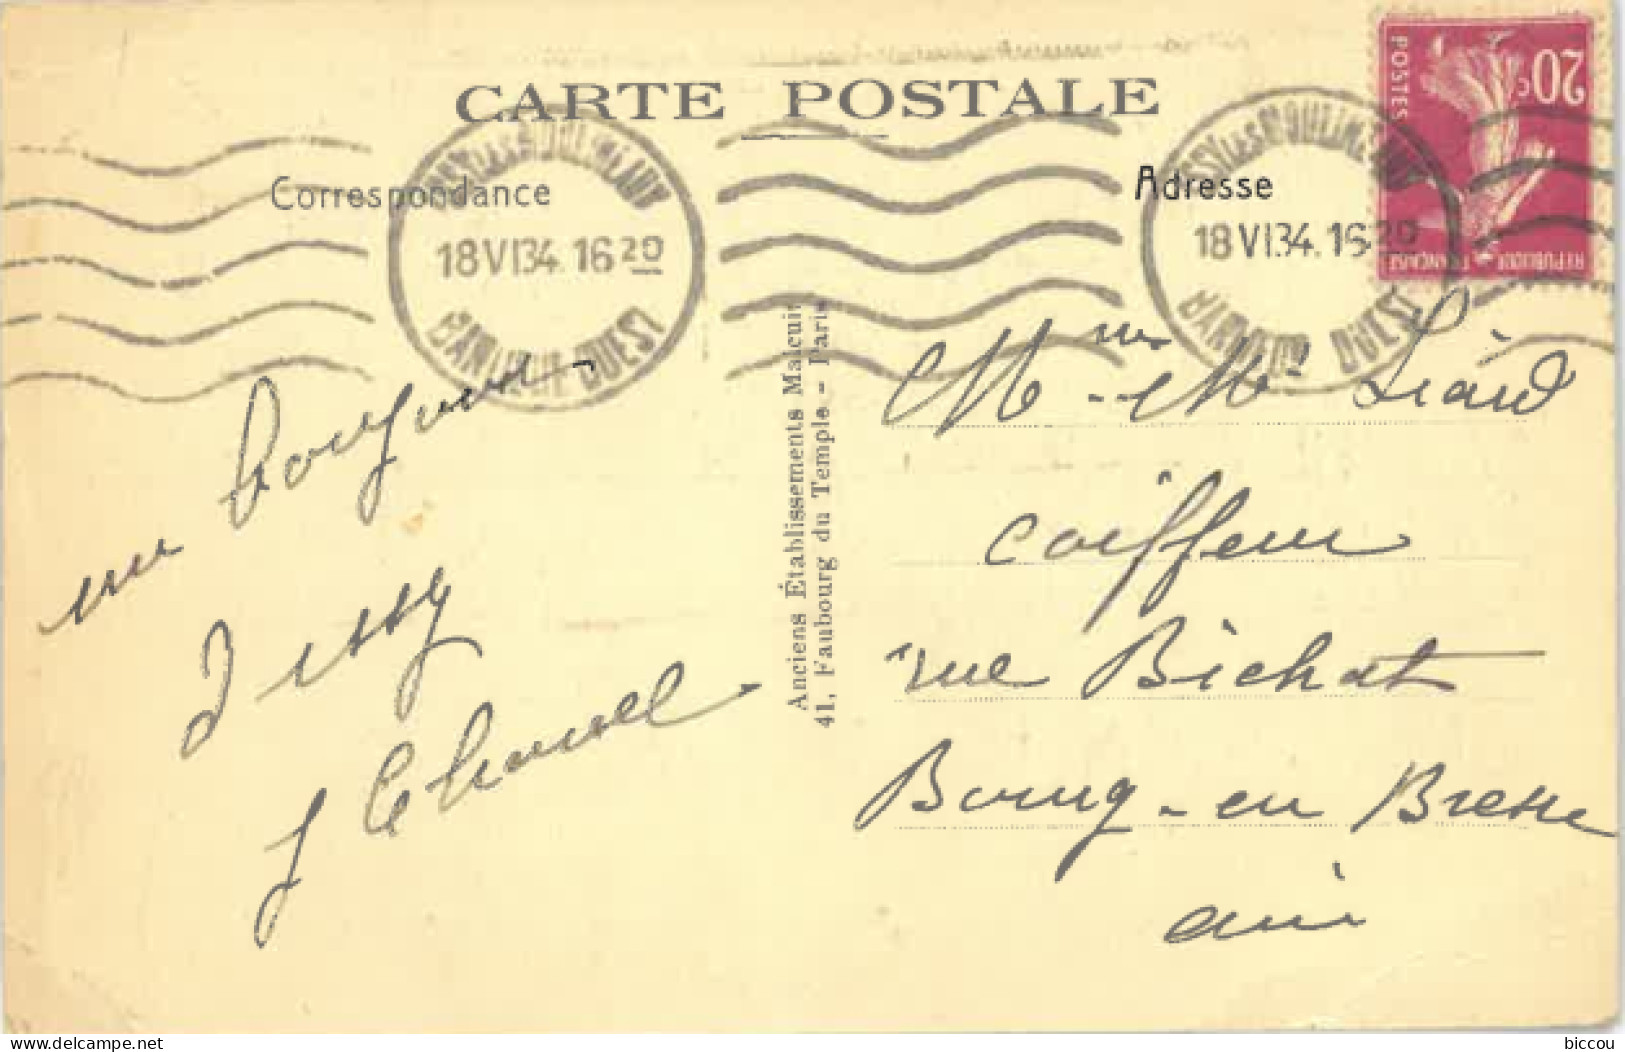 CARTE POSTALE
Correspondance
Adresse
ISSY LES MOULINEAUX
18 VI 34. 16 20
BANLIEUE OUEST
ISSY LES MOULINEAUX
18 VI 34. 16 20
BANLIEUE OUEST
20c
POSTES
REPUBLIQUE FRANÇAISE
un bonjour
Jessy
Anciens Établissements Malcuit
41, Faubourg du Temple - Paris
Mme - Mr Liard
coiffeur
rue Bichat
Bourg-en Bresse
ain
www.delcampe.net
biccou